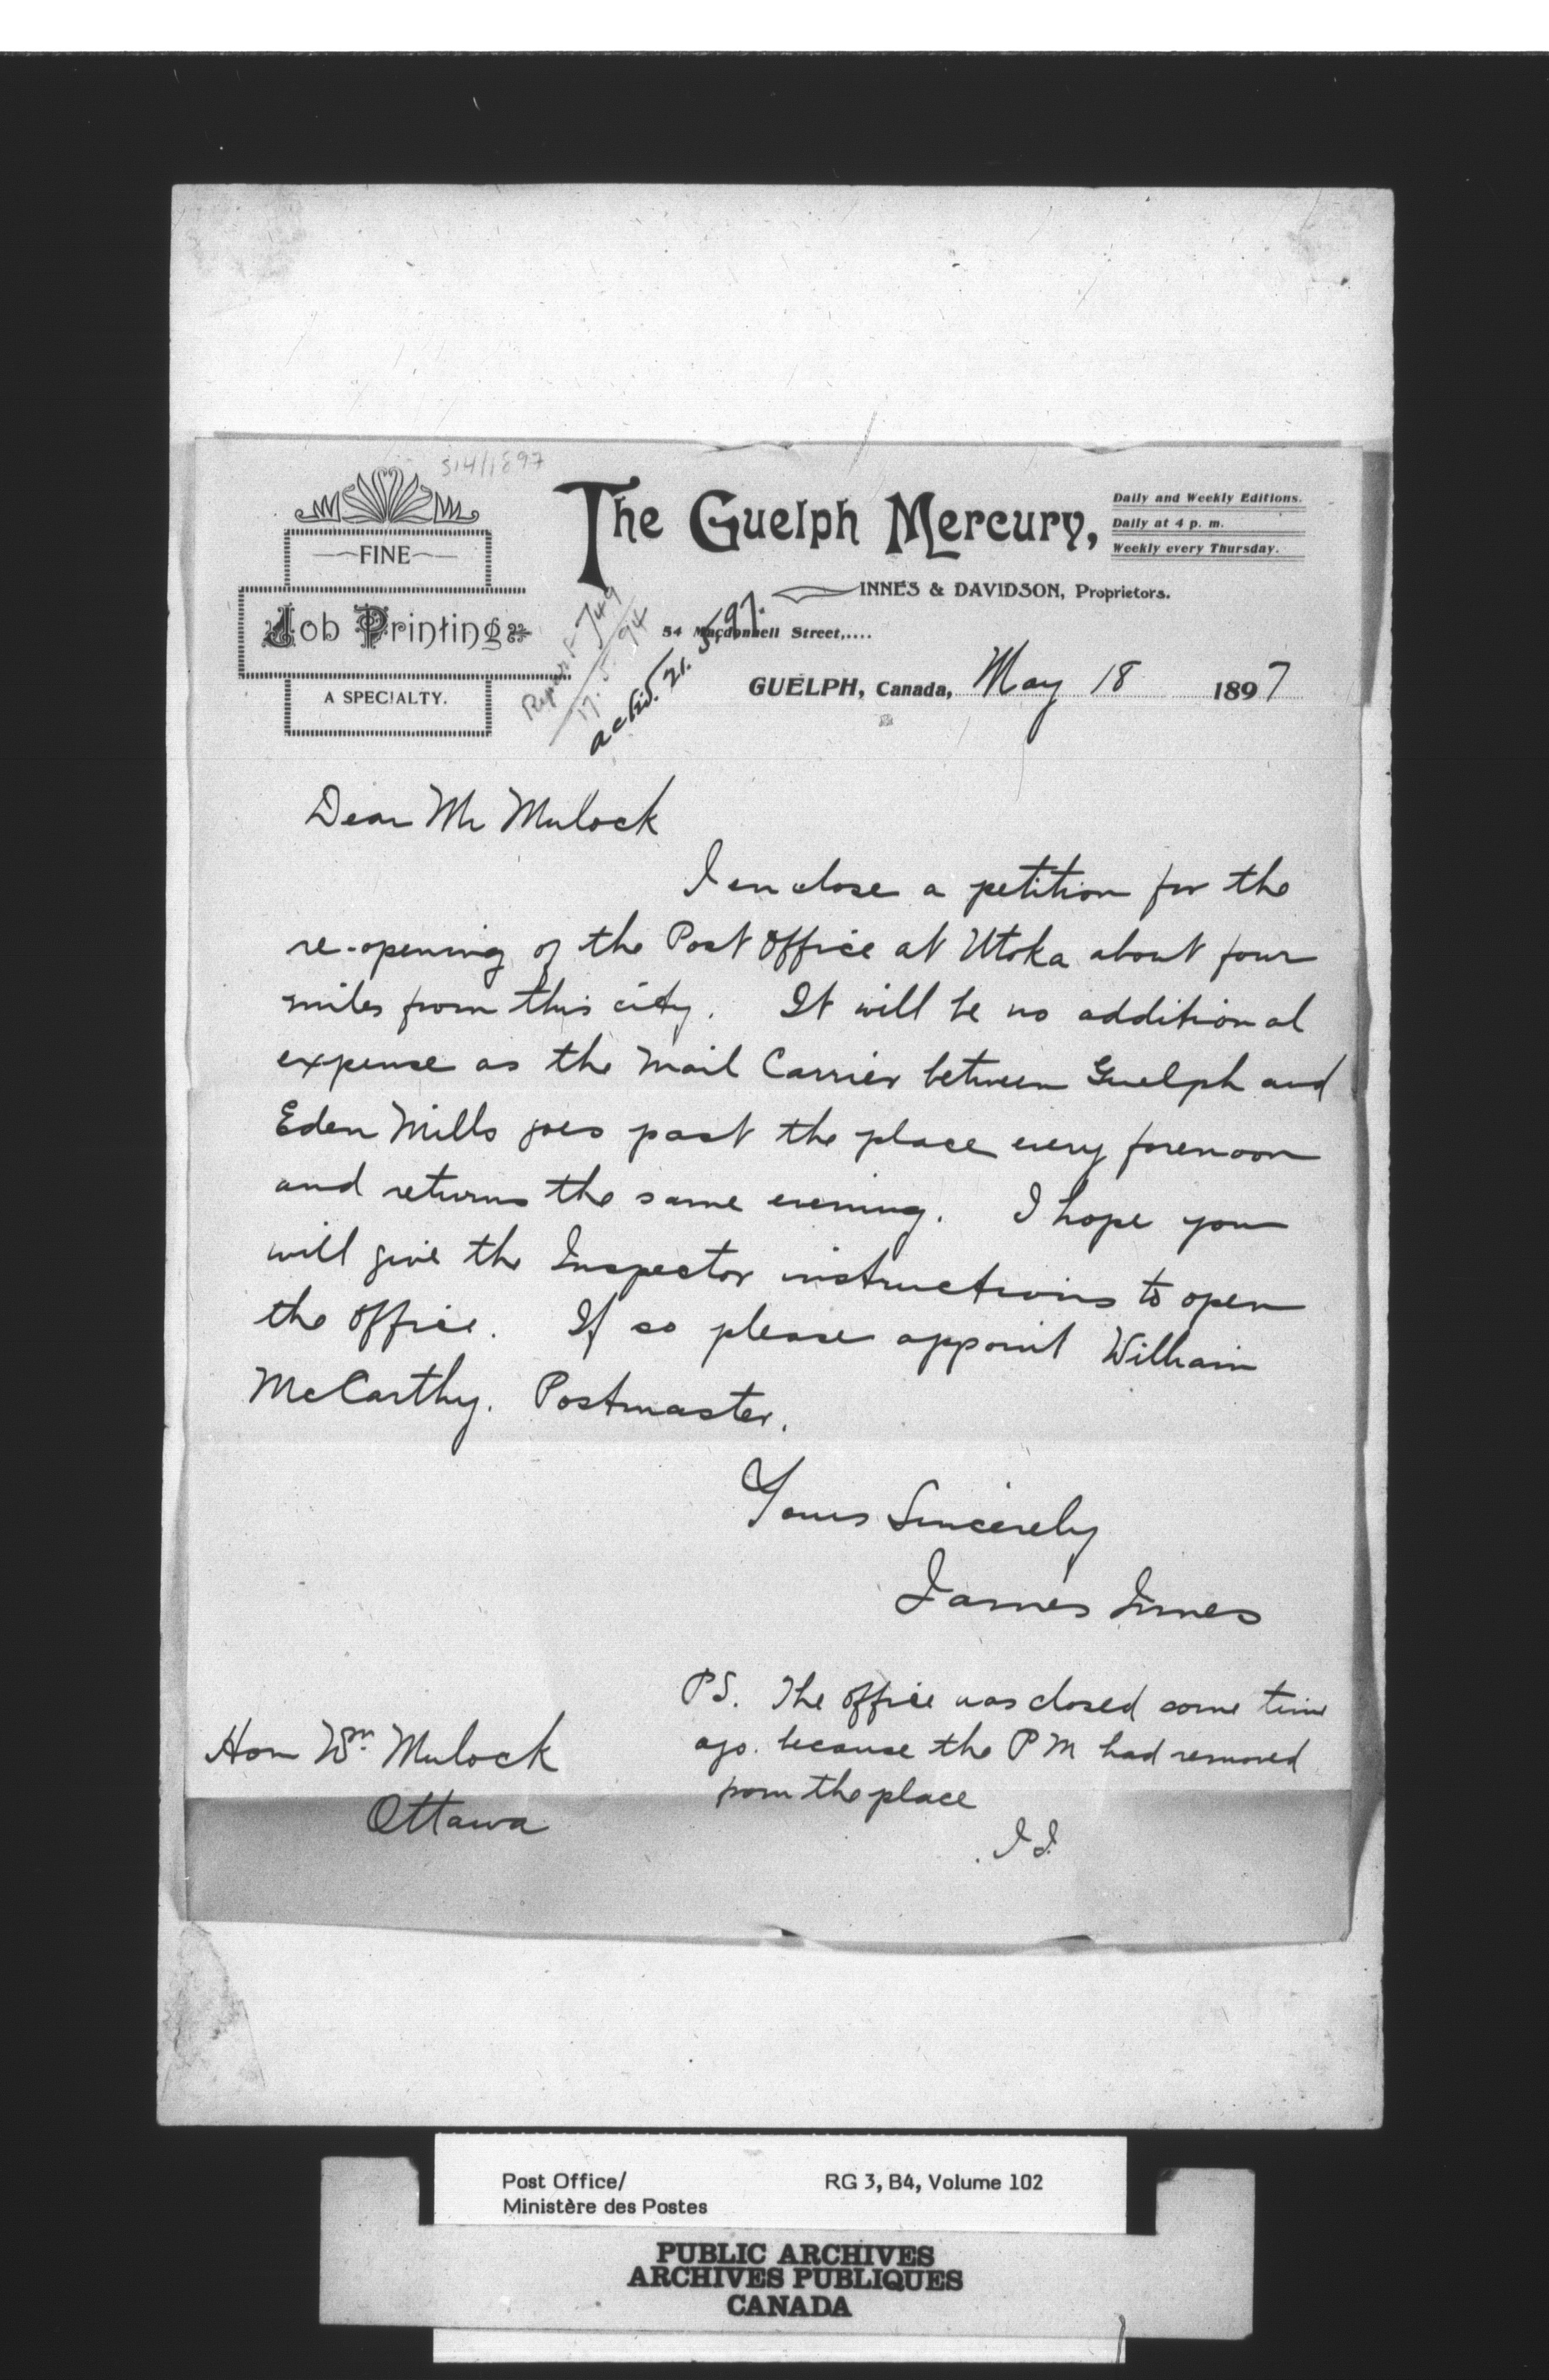 314/1897
FINE
Job Printing
A SPECIALTY.
The Guelph Mercury,
Daily and Weekly Editions.
Daily at 4 p. m.
Weekly every Thursday.
INNES & DAVIDSON, Proprietors.
54 Macdonnell Street,....
Report 749
17.5.94
ackd. 21. 5. 97.
GUELPH, Canada, May 18 1897
Dear Mr Mulock
I enclose a petition for the
re-opening of the Post Office at Utoka about four
miles from this city. It will be no additional
expense as the Mail Carrier between Guelph and
Eden Mills goes past the place every forenoon
and returns the same evening. I hope you
will give the Inspector instructions to open
the office. If so please appoint William
McCarthy. Postmaster.
Yours Sincerely
James Innes
PS. The office was closed some time
ago. because the P M had removed
from the place
J I.
Hon Wm. Mulock
Ottawa
Post Office/
Ministère des Postes
RG 3, B4, Volume 102
PUBLIC ARCHIVES
ARCHIVES PUBLIQUES
CANADA